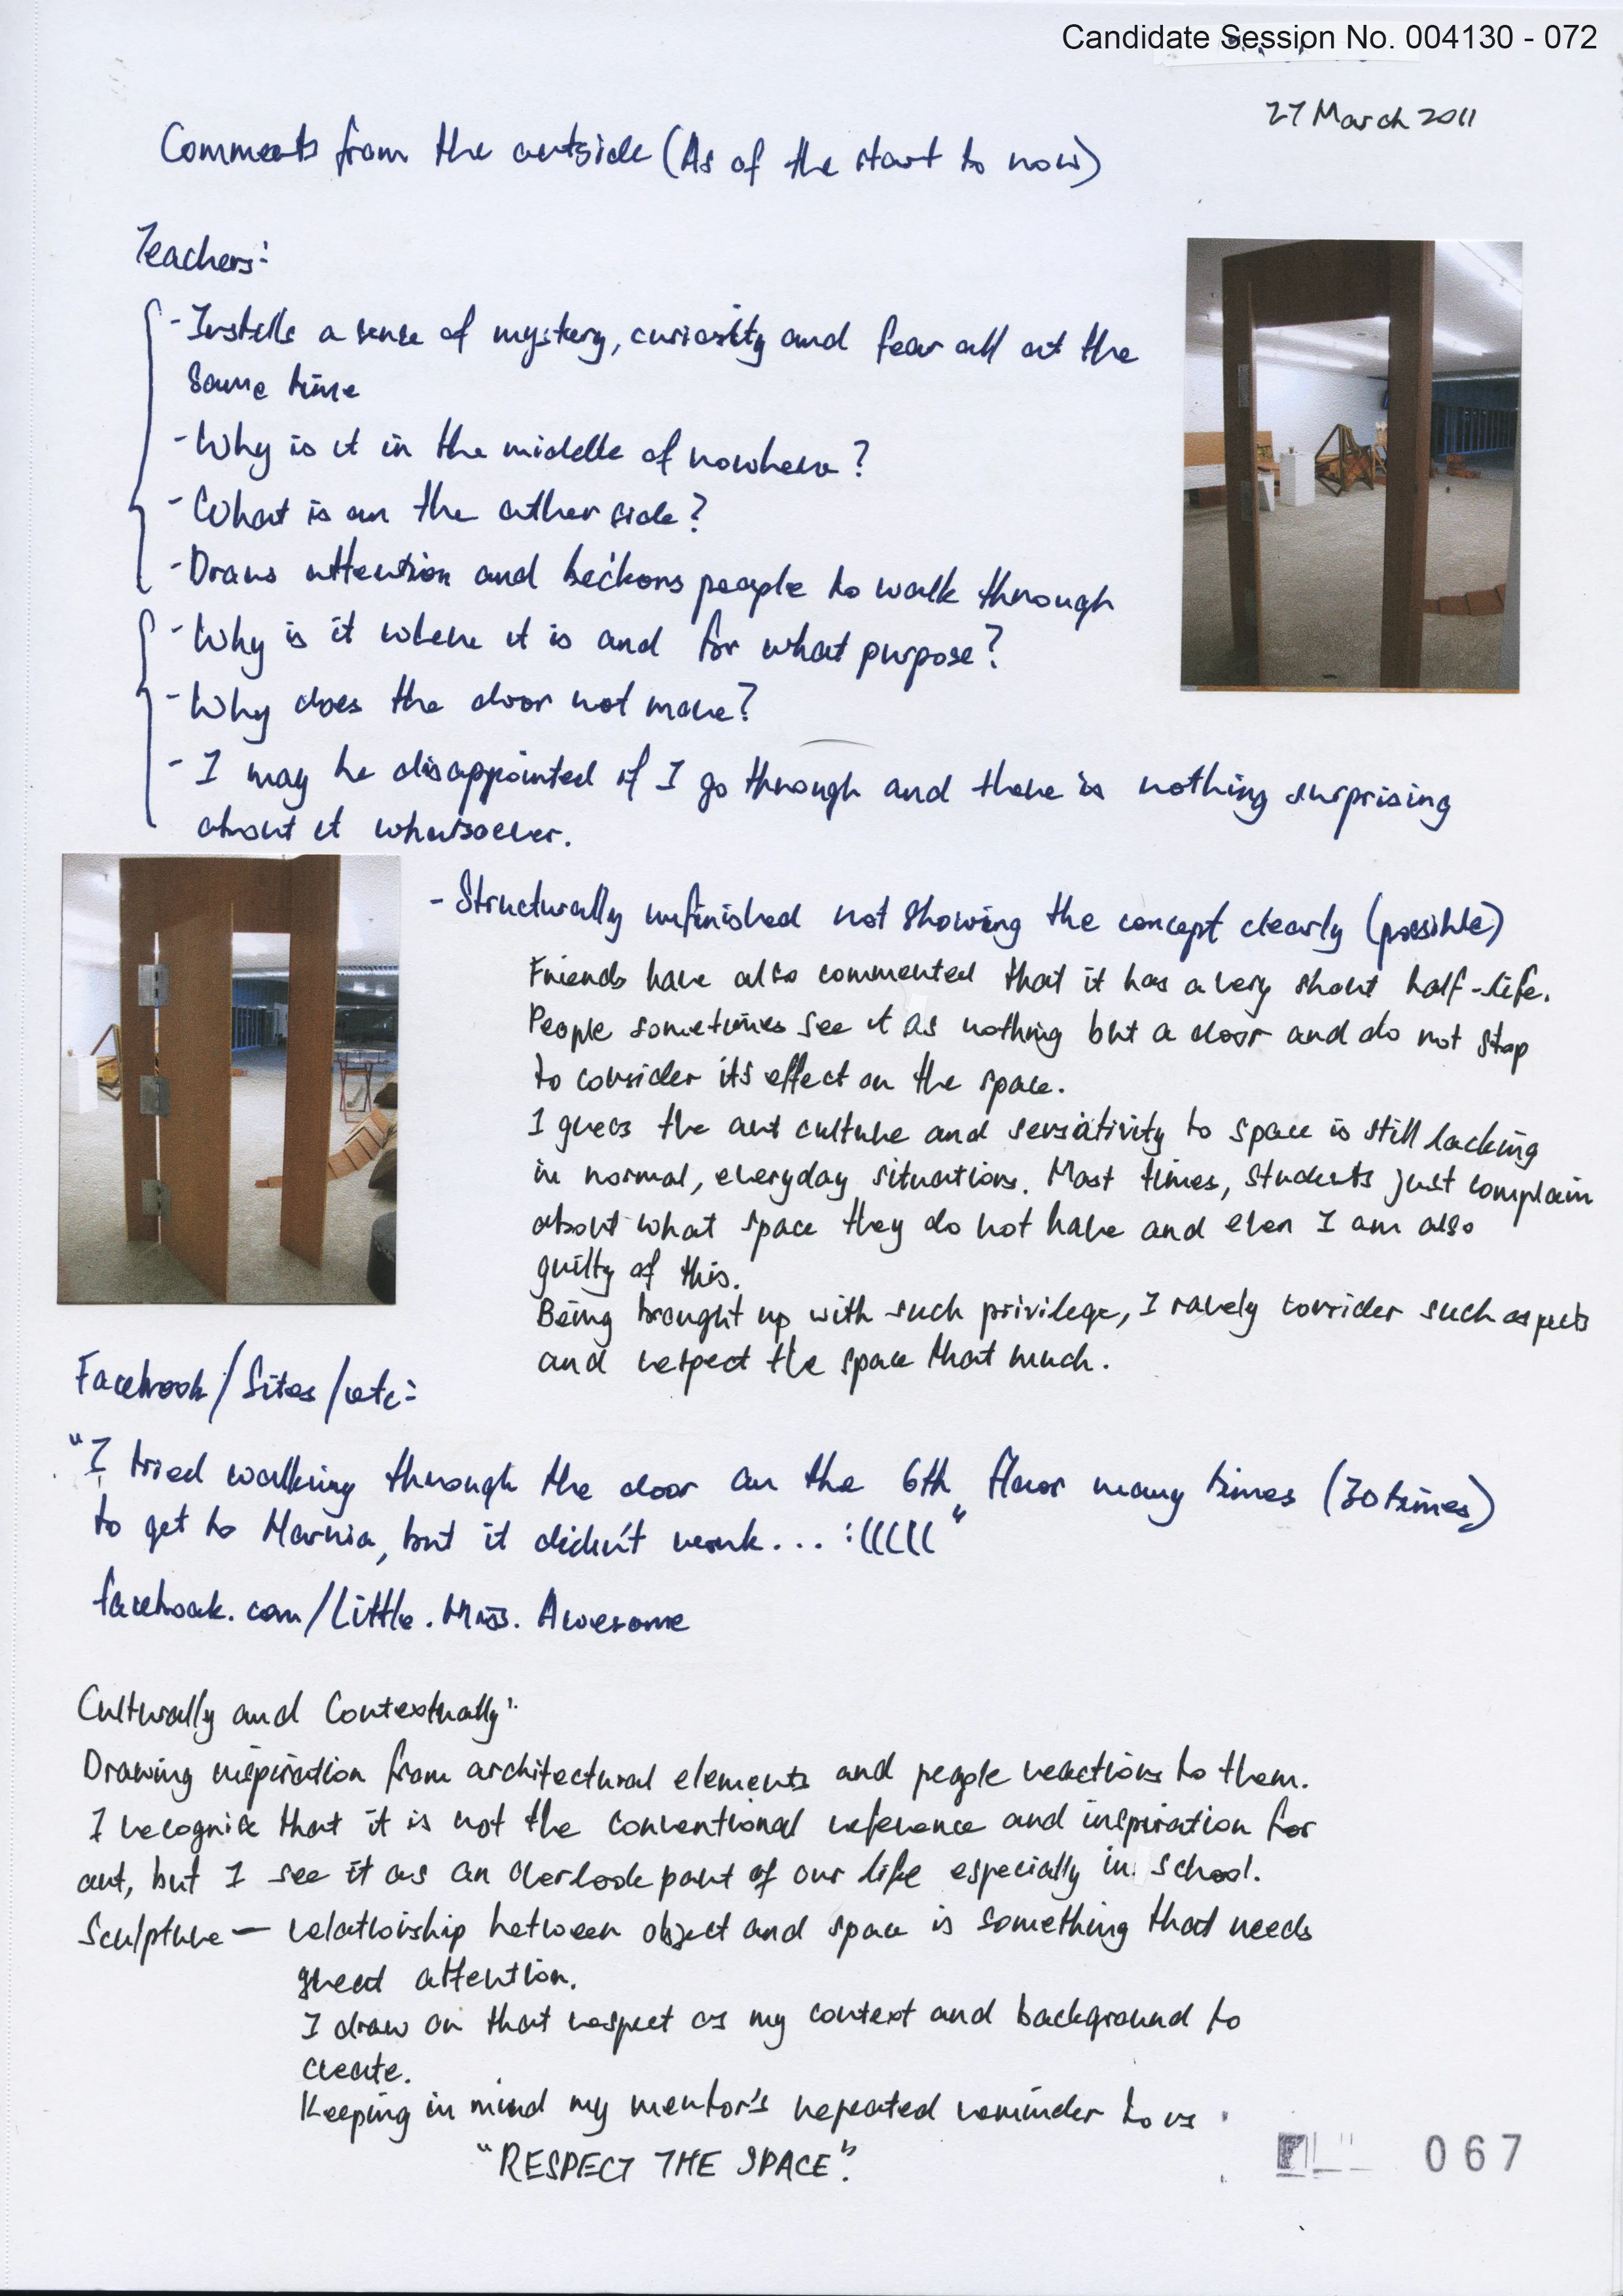 Candidate Session No. 004130 - 072
27 March 2011
Comments from the outside (As of the start to now)
Teachers:
- Instills a sense of mystery, curiosity and fear all at the
same time
- Why is it in the middle of nowhere?
- What is on the other side?
- Draws attention and beckons people to walk through
- Why is it where it is and for what purpose?
- Why does the door not move?
- I may be disappointed if I go through and there is nothing surprising
about it whatsoever.
- Structurally unfinished not showing the concept clearly (possible)
Friends have also commented that it has a very short half-life.
People sometimes see it as nothing but a door and do not stop
to consider its effect on the space.
I guess the art culture and sensitivity to space is still lacking
in normal, everyday situations. Most times, students just complain
about what space they do not have and even I am also
guilty of this.
Being brought up with such privilege, I rarely consider such aspects
and respect the space that much.
Facebook/Sites/etc:
"I tried walking through the door on the 6th floor many times (30 times)
to get to Narnia, but it didn't work... :((((("
facebook.com/Little.Miss.Awesome
Culturally and Contextually:
Drawing inspiration from architectural elements and people reactions to them.
I recognise that it is not the conventional reference and inspiration for
art, but I see it as an overlook part of our life especially in school.
Sculpture — relationship between object and space is something that needs
great attention.
I draw on that respect as my context and background to
create.
Keeping in mind my mentor's repeated reminder to us
"RESPECT THE SPACE".
067